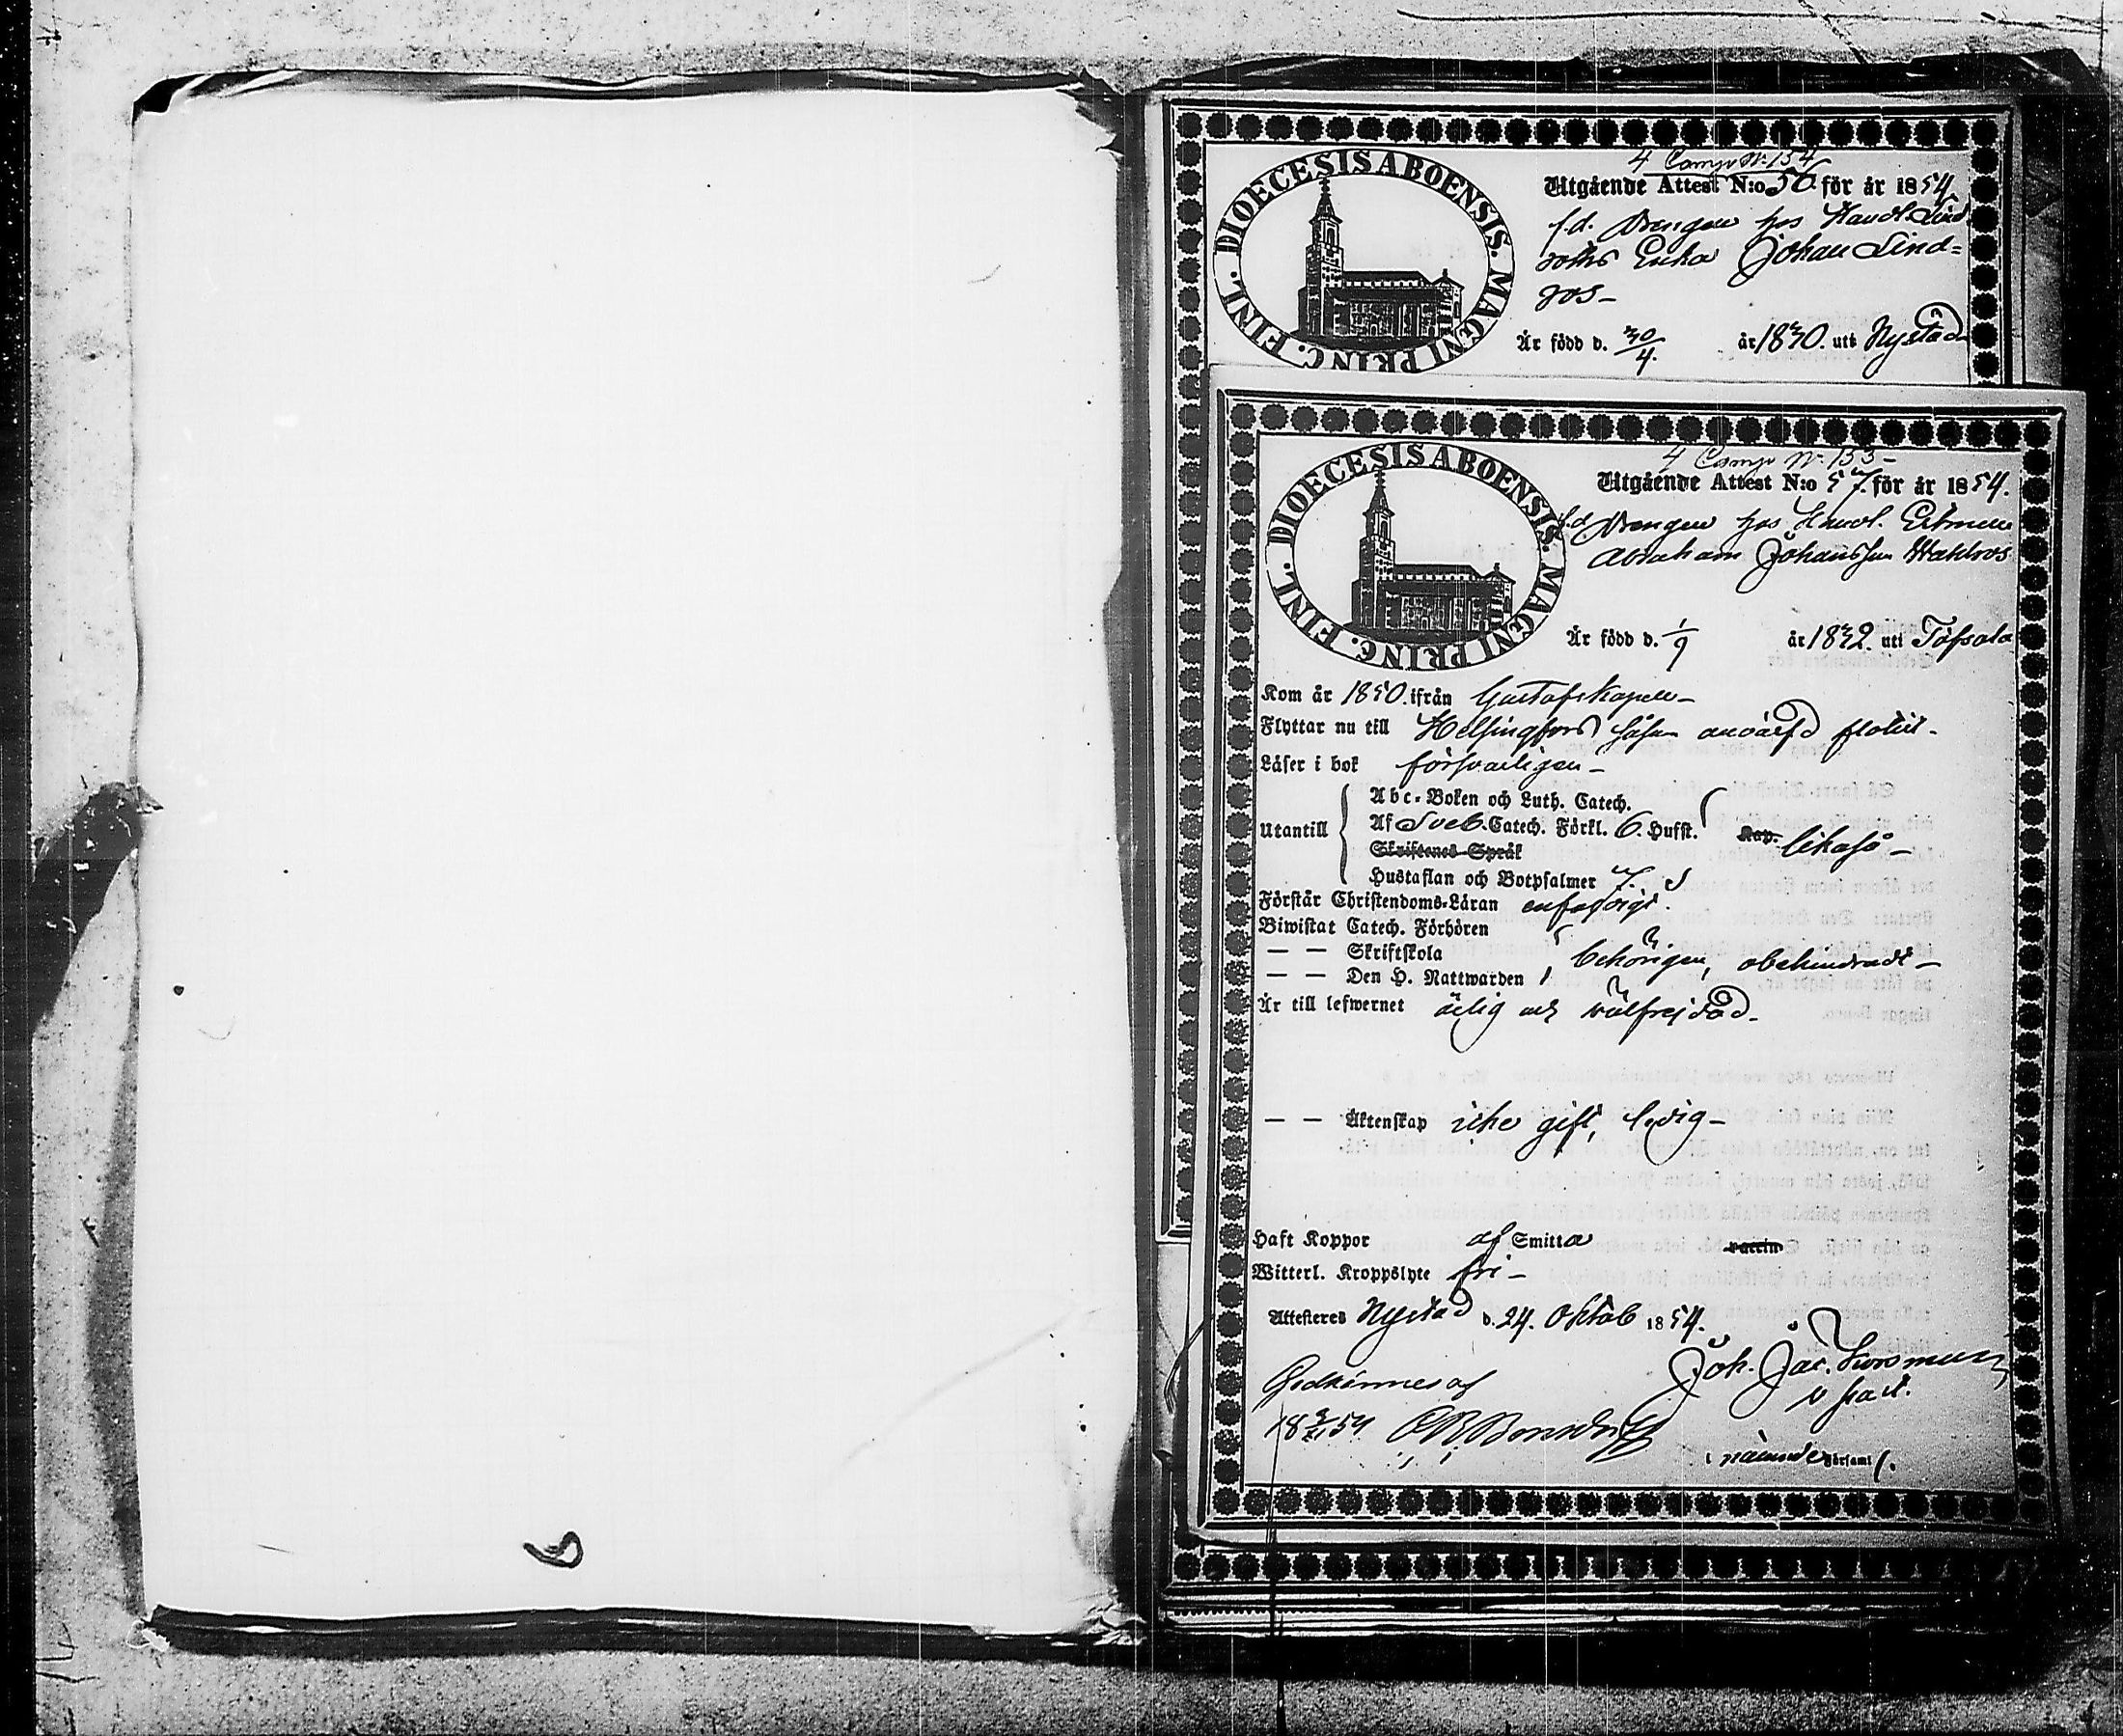 4 Comp N: 154
DIOECESIS ABOENSIS. MAGNI PRINC. FINL.
Utgående Attest N:o 50. för år 1854.
f.d. Drengen hos Handl. Lind
roths Enka Johan Lind=
ros-
Är född d. 30/4. år 1830. uti Nystad
4 Comp N: 133-
DIOECESIS ABOENSIS. MAGNI PRINC. FINL.
Utgående Attest N:o 57. för år 1854.
f.d. Drengen hos Handl.
Abraham Johansson Wahlros
Är född d. 1/9 år 1832. uti Töfsala
Kom år 1850. ifrån Gustafs Kapell-
Flyttar nu till Helsingfors såsom
Läser i bok försvarligen-
Utantill
Abc-Boken och Luth. Catech.
Af Sveb. Catech. Förkl. 6. Hufst. Kap. likaså-
Skriftenes Språk
Hustaflan och Botpsalmer 7.
Förstår Christendoms-Läran enfaldigt.
Biwistat Catech. Förhören
— — Skriftskola behörigen, obehindradt-
— — Den H. Nattwarden
Är till lefwernet ärlig och wälfrejdad.
— — Äktenskap icke gift, ledig-
Haft Koppor af Smitta vaccin
Witterl. Kroppslyte fri-
Attesteras Nystad d. 24. Oktob 1854.
Joh. Jac.
v Past.
Godkännes af
18 54
i nämnde Församl.